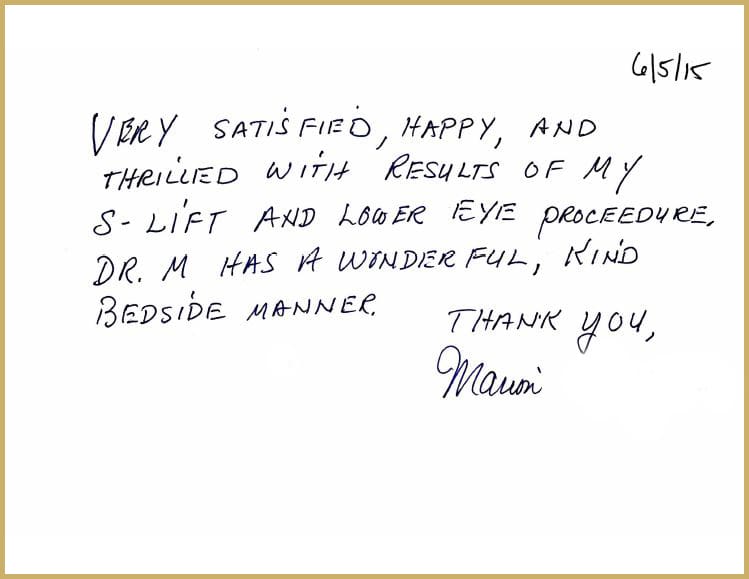 6/5/15
VERY SATISFIED, HAPPY, AND
THRILLED WITH RESULTS OF MY
S-LIFT AND LOWER EYE PROCEEDURE,
DR. M HAS A WONDERFUL, KIND
BEDSIDE MANNER.
THANK YOU,